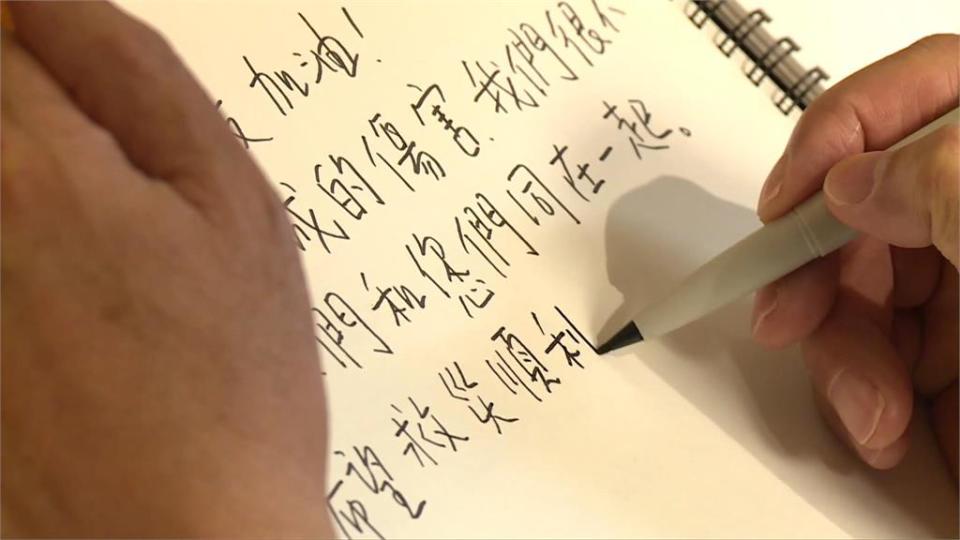 加油!
成的傷害.我們很不
們和您們同在一起。
希望救災順利